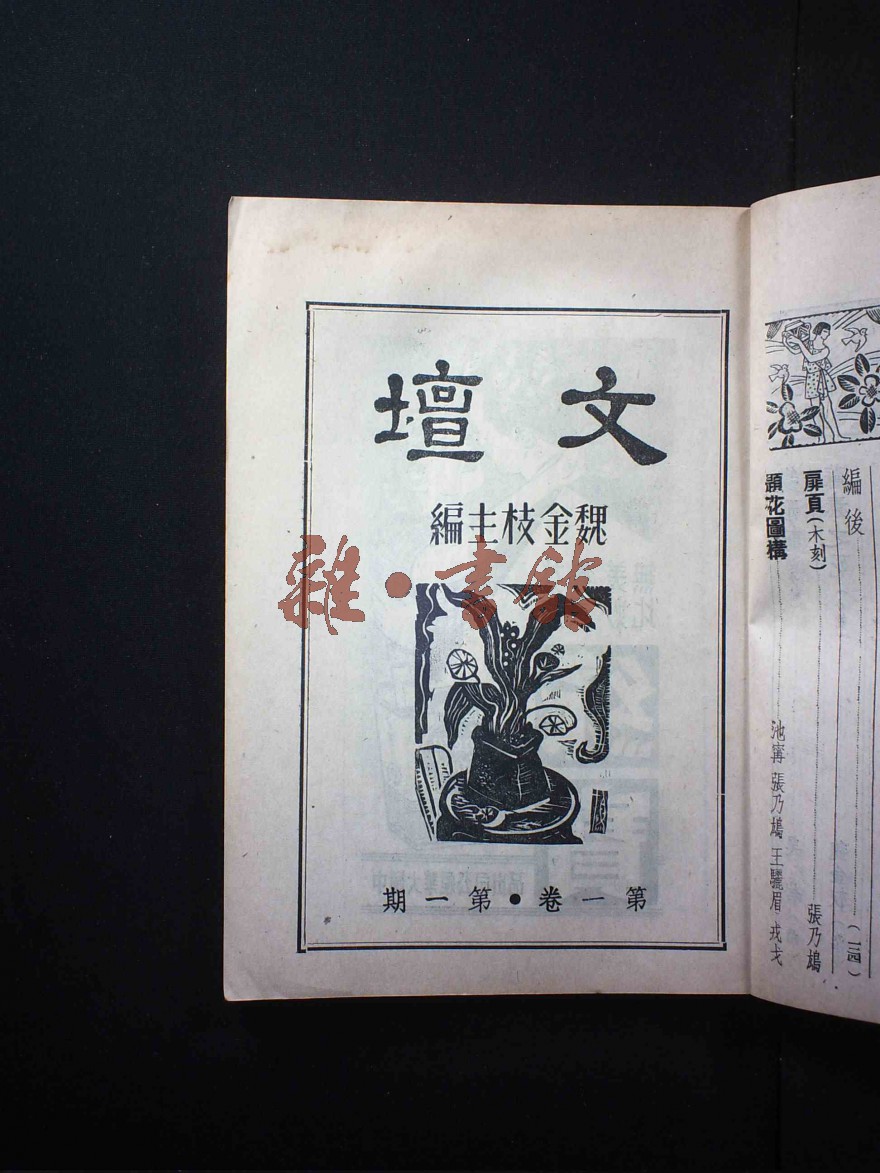 文壇
魏金枝主編
雜·書館
第一卷·第一期
編後……(一三四)
扉頁(木刻)……張乃鴆
題花圖構……池寗 張乃鴆 王驪眉 戎戈